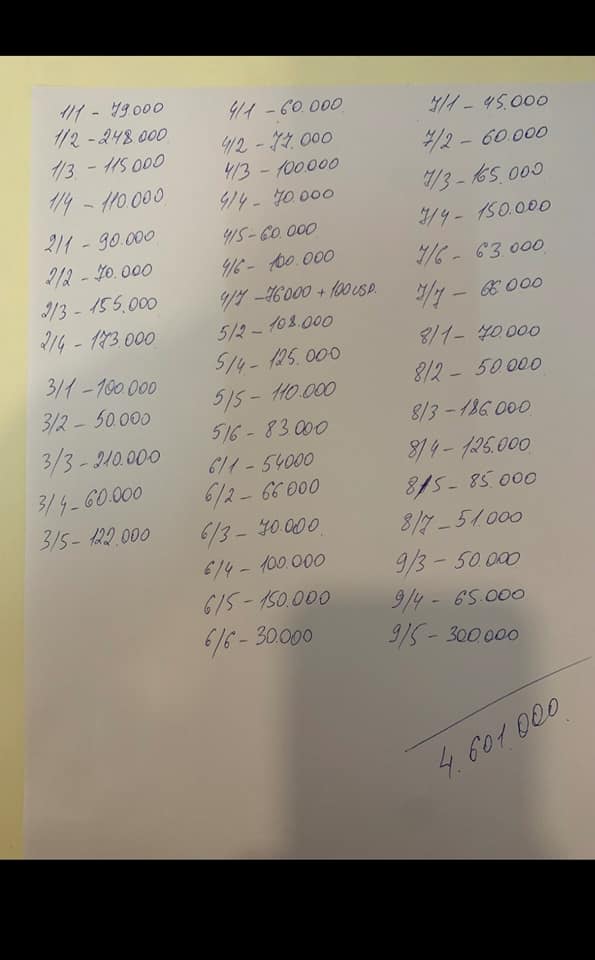 1/1 - 79000
1/2 - 248.000
1/3 - 115000
1/4 - 110.000
2/1 - 90.000
2/2 - 70.000
2/3 - 155.000
2/4 - 173.000
3/1 - 100.000
3/2 - 50.000
3/3 - 210.000
3/4 - 60.000
3/5 - 122.000
4/1 - 60.000
4/2 - 77.000
4/3 - 100.000
4/4 - 70.000
4/5 - 60.000
4/6 - 100.000
4/7 - 76000 + 100 USD.
5/2 - 108.000
5/4 - 125.000
5/5 - 110.000
5/6 - 83.000
6/1 - 54000
6/2 - 66000
6/3 - 70.000.
6/4 - 100.000
6/5 - 150.000
6/6 - 30.000
7/1 - 45.000
7/2 - 60.000
7/3 - 165.000
7/4 - 150.000
7/6 - 63.000
7/7 - 66000
8/1 - 70.000
8/2 - 50.000
8/3 - 186.000
8/4 - 125.000
8/5 - 85.000
8/7 - 51.000
9/3 - 50.000
9/4 - 65.000
9/5 - 300.000
4.601.000.